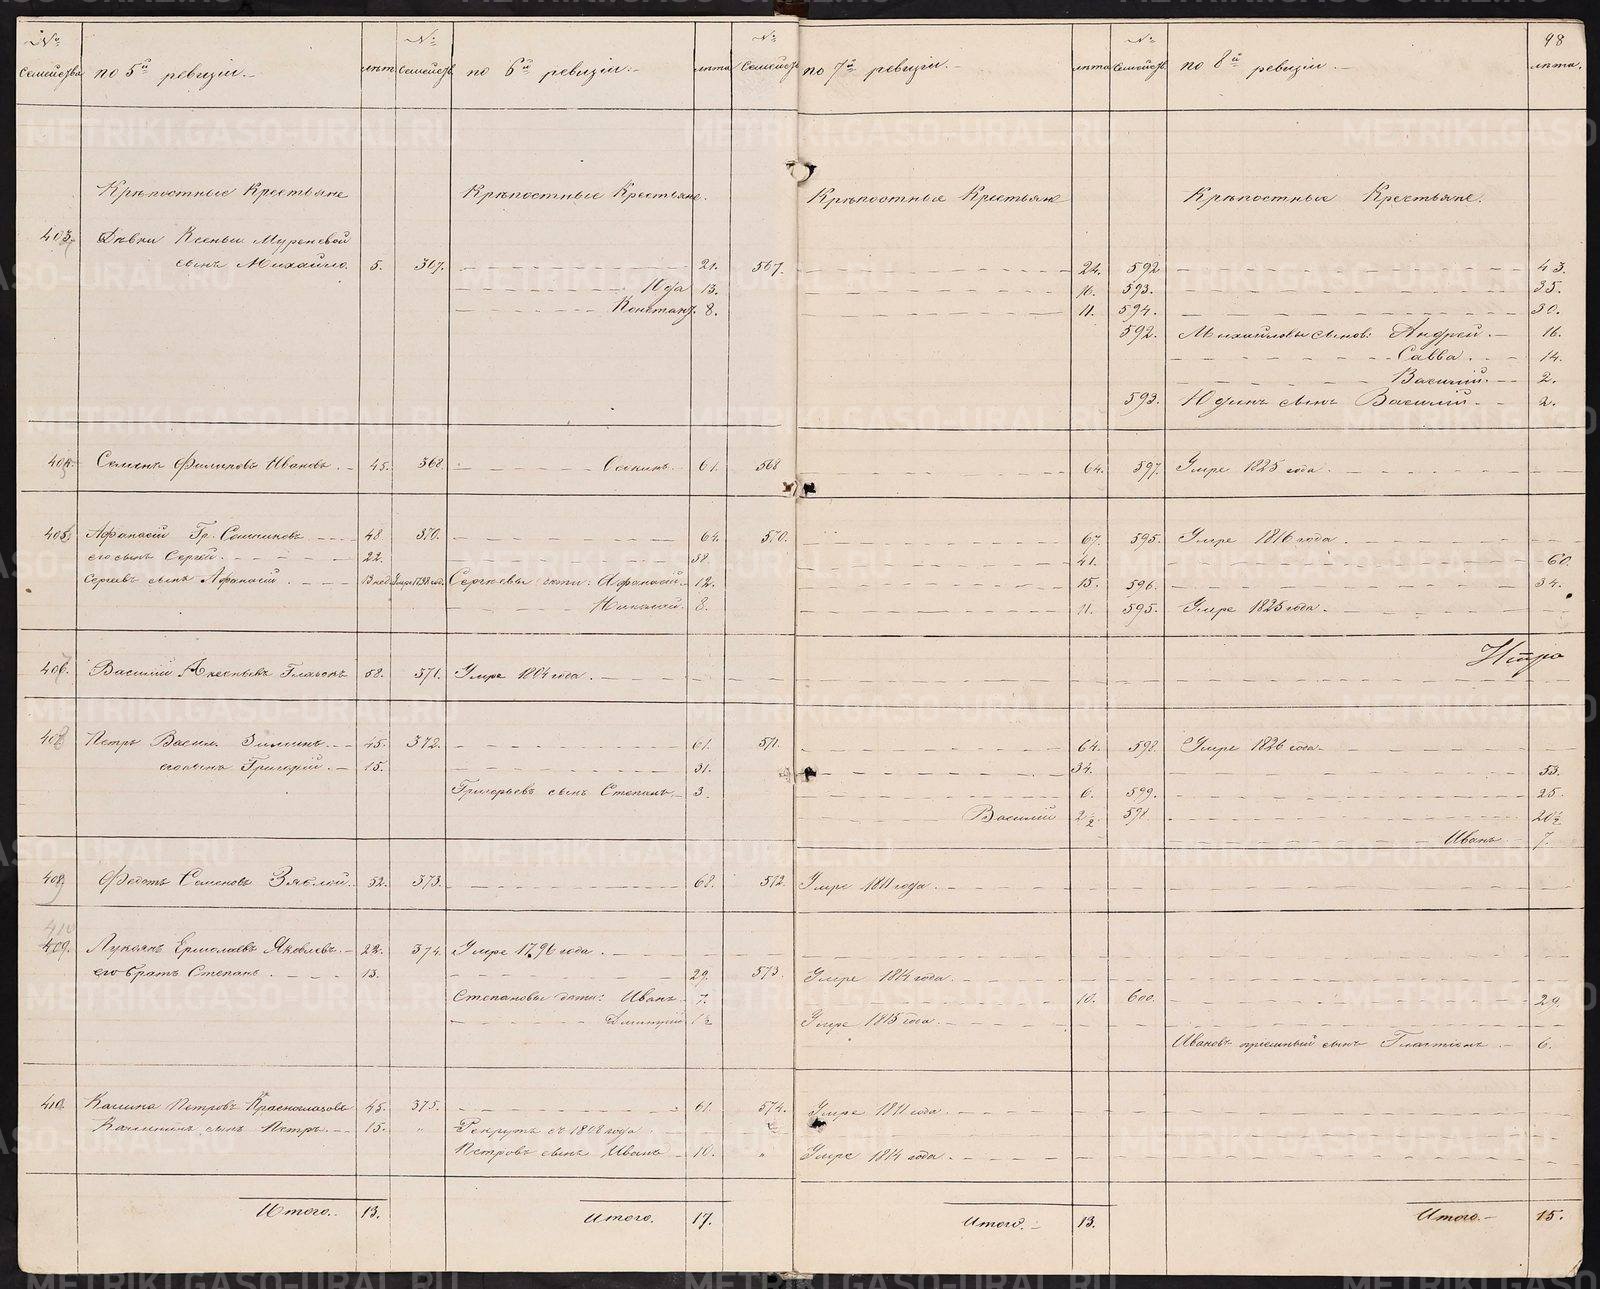 98
№ семейства по 5й ревизіи. лѣта № семейств. по 6й ревизіи. лѣта № семейств. по 7й ревизіи. лѣта № семейств. по 8й ревизіи. лѣта.
Крѣпостные Крестьяне Крѣпостные Крестьяне. Крѣпостные Крестьяне Крѣпостные Крестьяне.
403. Дѣвки Ксеньи
сынъ Михайло. 5. 367. 21. 567. 24. 592 43.
Юда 13. 16. 593. 35.
Констант. 8. 11. 594. 30.
592. Михайловы сынов: Андрей. 16.
Савва. 14.
Василій. 2.
593. Юдинъ сынъ Василій. 2.
Семенъ Филиповъ Ивановъ. 45. 368. 61. 568 64. 597. Умре 1825 года.
405 Афанасій Гр. 48 370. 64. 570. 67. 595. Умре 1816 года.
его сынъ Сергей. 22. 38. 41. 60.
Сергеевъ сынъ Афанасій. Умре 1798 год. Сергѣевы дѣти: Афанасій. 12. 15. 596. 34.
Николай. 8. 11. 595. Умре 1825 года.
Итро
406. Василій 58. 371. Умре 1804 года.
Петръ Васил. Зиминъ. 45. 372. 61. 571. 64. 598. Умре 1826 года.
его сынъ Григорій. 15. 31. 34. 53.
Григорьевъ сынъ Степанъ. 3. 6. 599. 25.
Василій 2½ 598. 20½
Иванъ 7.
Федотъ Семеновъ Зяблой. 52. 373. 68. 572. Умре 1811 года.
410
409. Лукоянъ Ермолаевъ Яковлевъ. 22. 374. Умре 1796 года.
его братъ Степанъ. 13. 29. 573. Умре 1814 года.
Степановы дѣти: Иванъ 7. 10. 600. 29.
Дмитрій 1½ Умре 1815 года.
Ивановъ пріемный сынъ 6.
410 Калина Петровъ Красноглазовъ 45. 375. 61. 574. Умре 1811 года.
Калининъ сынъ Петръ. 15. " Рекрутъ съ 1808 года.
Петровъ сынъ Иванъ 10. " Умре 1814 года.
Итого. 13. Итого. 17. Итого. 13. Итого. 15.
METRIKI.GASO-URAL.RU